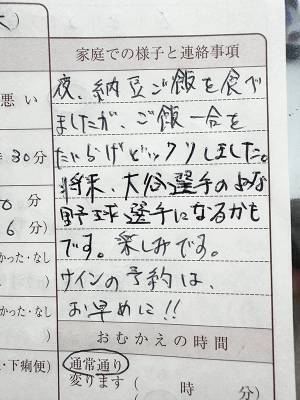 大)
家庭での様子と連絡事項
悪い
夜、納豆ご飯を食べ
ましたが、ご飯一合を
30分
たいらげビックリしました。
将来、大谷選手のような
0 分
野球選手になるかも
6 分)
です。楽しみです。
かった・なし
サインの予約は、
)
お早めに!!
かった・なし
)
おむかえの時間
・下痢便)
通常通り
変ります ( 時 分)